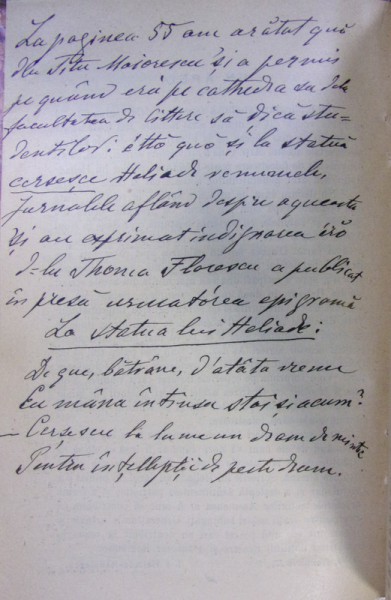 La paginea 55 am arătat quă
dlu Titu Maiorescu și a permis
pe quând erà pe cathedra sa dela
facultatea de littere să dică stu-
dentilor: éttò quò și la statuă
cersesce Heliade renumele,
Jurnalele aflând despre aquesta
și au exprimat indignarea éro
d-lu Thoma Florescu a publicat
în presă urmatórea epigramă
La statua lui Heliade:
De que, bětrâne, d'atâta vreme
Cu mâna întinsu stai si acum?
— Cersescu la lume un dram de minte
Pentru înțellepții de peste drum.